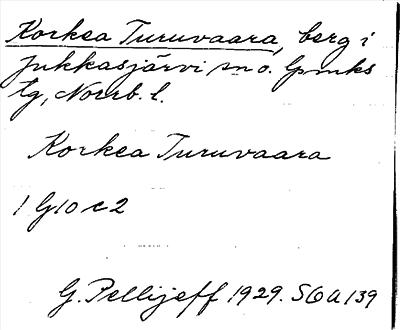 Korkea Turuvaara, berg i
Jukkasjärvi sn o. lpmks
tg, Norrb. l.
Korkea Turuvaara
1 G10 c2
G. Pellijeff 1929. S6A139